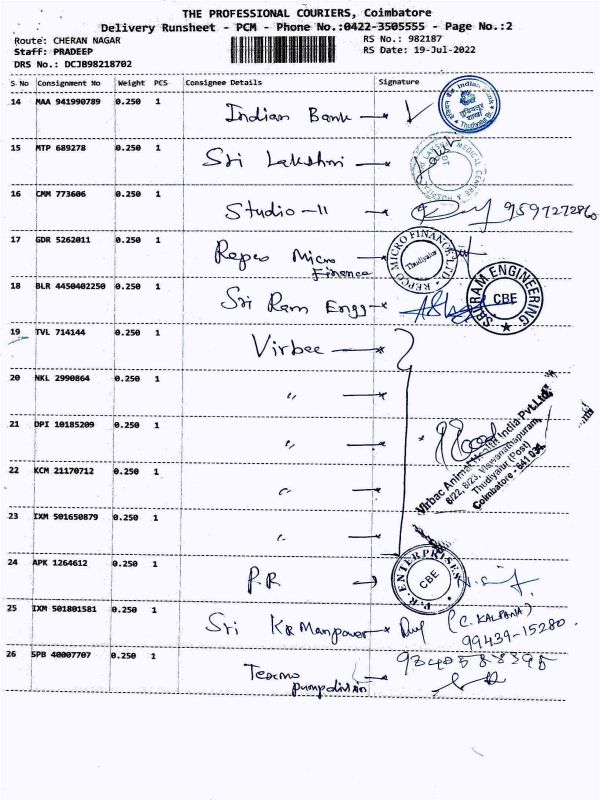 THE PROFESSIONAL COURIERS, Coimbatore
Delivery Runsheet - PCM - Phone No.:0422-3505555 - Page No.:2
Route: CHERAN NAGAR RS No.: 982187
Staff: PRADEEP RS Date: 19-Jul-2022
DRS No.: DCJB98218702
S No Consignment No Weight PCS Consignee Details Signature
14 MAA 941990789 0.250 1 Indian Bank
15 MTP 689278 0.250 1 Sri Lakshmi
16 CMM 773606 0.250 1 Studio-11 9597272860
17 GDR 5262011 0.250 1 Repco Micro Finance
REPCO MICRO FINANCE LTD Thudiyalur
18 BLR 4450402250 0.250 1 Sri Ram Engg
SRI RAM ENGINEERING CBE
19 TVL 714144 0.250 1 Virbac
20 NKL 2990864 0.250 1 "
21 DPI 10185209 0.250 1 "
Virbac Animal Health India Pvt.Ltd.
8/22, 8/23, Viswanathapuram,
Thudiyalur (Post)
Coimbatore - 641 034.
22 KCM 21170712 0.250 1 "
23 IXM 501650879 0.250 1 "
24 APK 1264612 0.250 1 P.R
P.R. ENTERPRISES CBE
25 IXM 501801581 0.250 1 Sri KR Manpower (C. KALPANA)
99439-15280.
26 SPB 40007707 0.250 1 Texmo
pump division